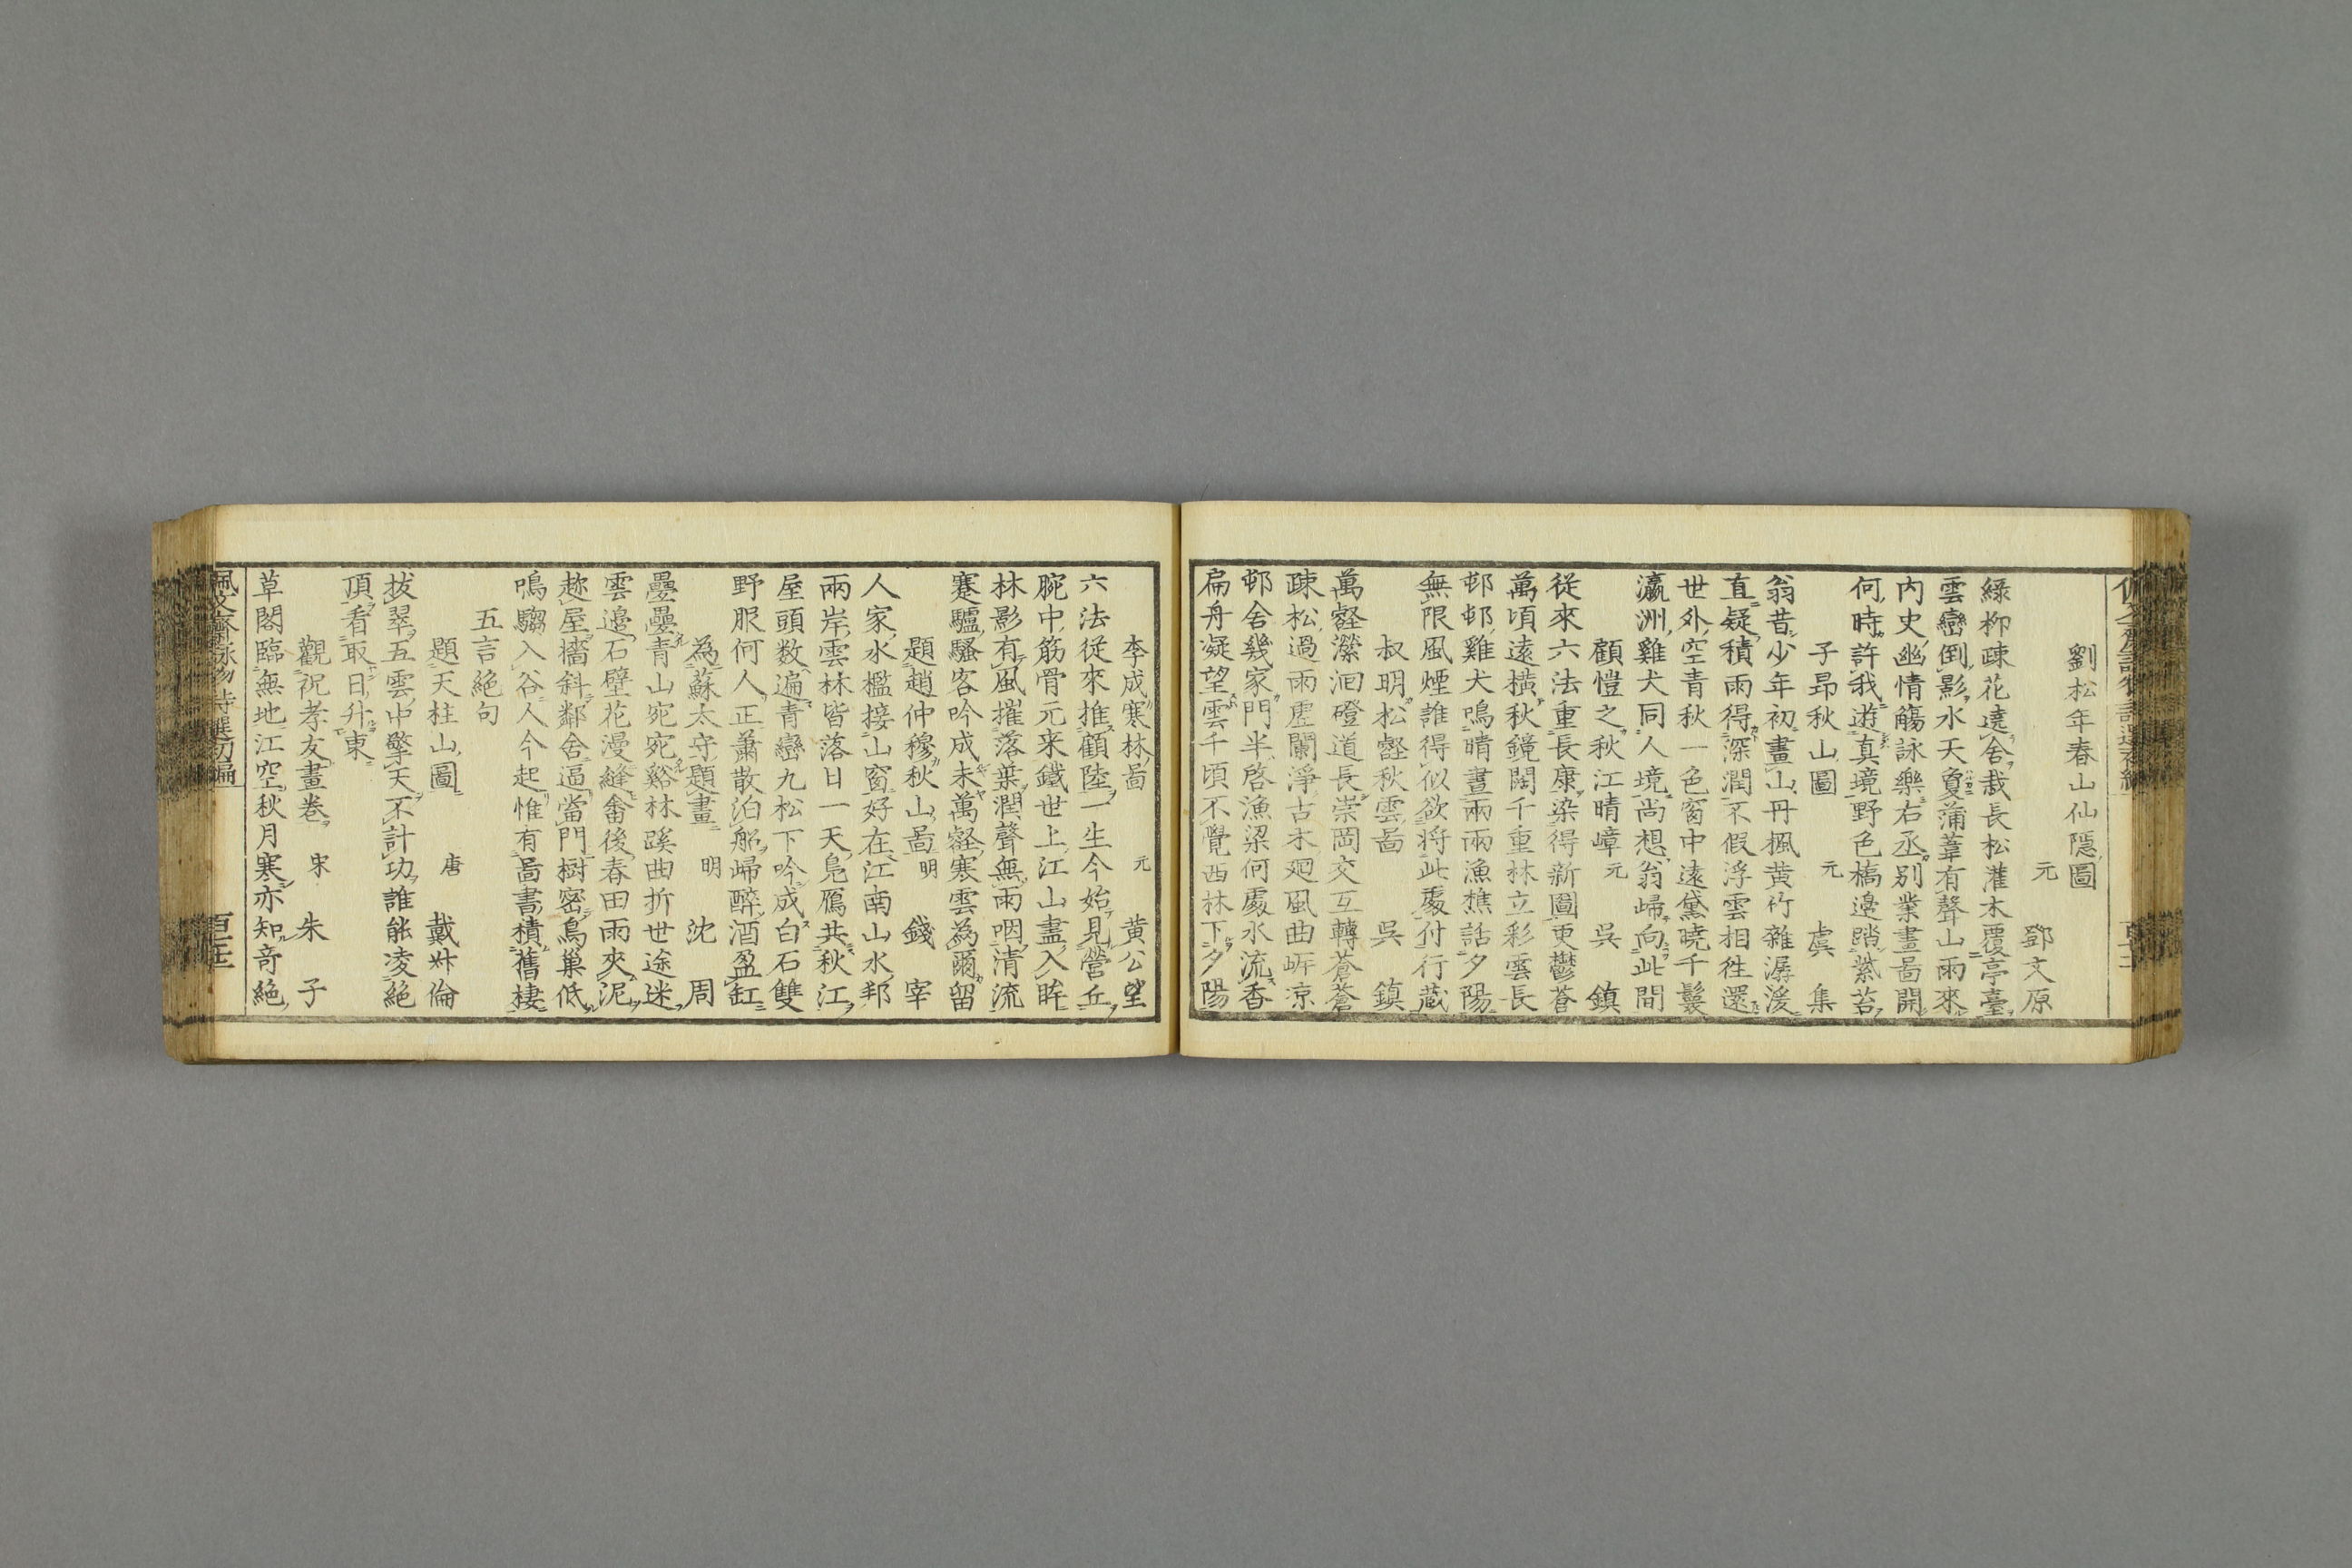 劉松年春山仙隱圖
元 鄧文原
綠柳疎花遶舍栽長松灌木覆亭臺
雲巒倒影水天夐蒲葦有聲山雨來
内史幽情觴詠樂右丞別業畫啚開
何時許我遊真境野色橋邊踏紫苔
子昻秋山圖 元 虞集
翁昔少年初畫山丹楓黄竹雜潺湲
直疑積雨得深潤不假浮雲相往還
世外空青秋一色窗中遠黛曉千鬟
瀛洲雞犬同人境尚想翁歸向此間
顧愷之秋江晴嶂 元 吳鎮
從來六法重長康染得新圖更鬱蒼
萬頃遠横秋鏡闊千重林立彩雲長
邨邨雞犬鳴晴晝兩兩漁樵話夕陽
無限風煙誰得似欲將此處付行藏
叔明松壑秋雲啚 吳鎮
萬壑瀠洄磴道長崇岡交互轉蒼蒼
疎松過雨虚闌淨古木廻風曲㟁涼
邨舍幾家門半啓漁梁何處水流香
扁舟凝望雲千頃不覺西林下夕陽
李成寒林啚 元 黄公望
六法從來推顧陸一生今始見營丘
腕中筋骨元来鐵世上江山盡入眸
林影有風摧落葉澗聲無雨咽清流
蹇驢騷客吟成未萬壑寒雲為爾留
題趙仲穆秋山啚 明 錢宰
人家水檻接山窗好在江南山水邦
兩岸雲林皆落日一天鳬鴈共秋江
屋頭数遍青巒九松下吟成白石雙
野服何人正蕭散泊船歸醉酒盈缸
為蘇太守題畫 明 沈周
疊疊青山宛宛谿林蹊曲折世途迷
雲邉石壁花漫縫畬後春田雨夾泥
趂屋墻斜鄰舍逼當門樹密鳥巢低
鳴騶入谷人今起惟有啚書積舊棲
五言絶句
題天柱山圖 唐 戴叔倫
拔翠五雲中擎天不計功誰能凌絶
頂看取日升東
觀祝孝友畫卷 宋 朱子
草閣臨無地江空秋月寒亦知奇絶
佩文齋詠物詩選初編